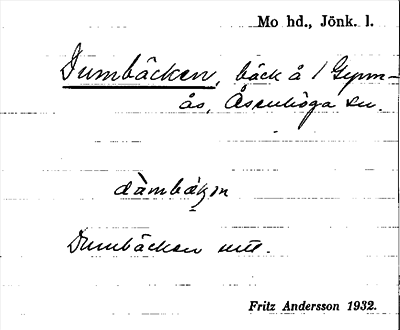 Mo hd., Jönk. l.
Dumbäcken, bäck å 1 Gynn-
ås, Åsenhöga sn.
Dumbäcken utt.
Fritz Andersson 1932.